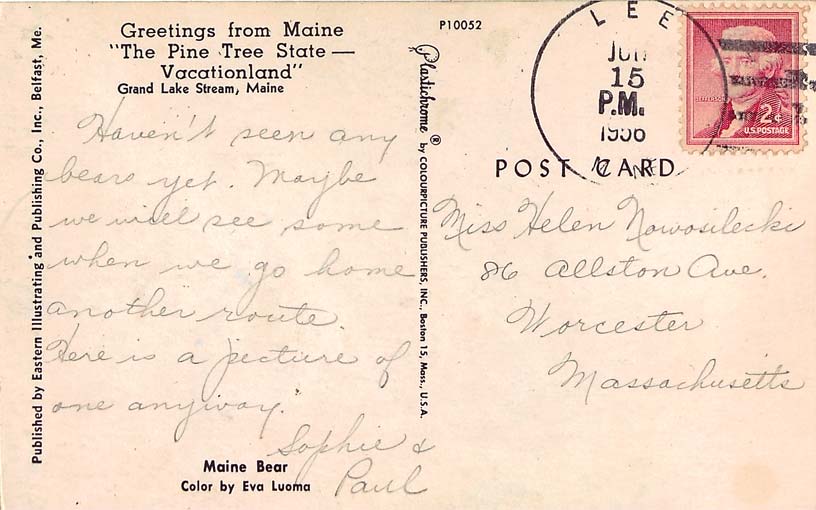 Greetings from Maine
"The Pine Tree State —
Vacationland"
Grand Lake Stream, Maine
Haven't seen any
bears yet. Maybe
we will see some
when we go home
another route.
Here is a picture of
one anyway.
Sophie &
Paul
Maine Bear
Color by Eva Luoma
Published by Eastern Illustrating and Publishing Co., Inc., Belfast, Me.
Plastichrome ® by COLOURPICTURE PUBLISHERS, INC., Boston 15, Mass., U.S.A.
P10052
LEE
JUN
15
P.M.
1956
MAINE
JEFFERSON
2¢
U.S. POSTAGE
POST CARD
Miss Helen Nowosilecki
86 Allston Ave.
Worcester
Massachusetts